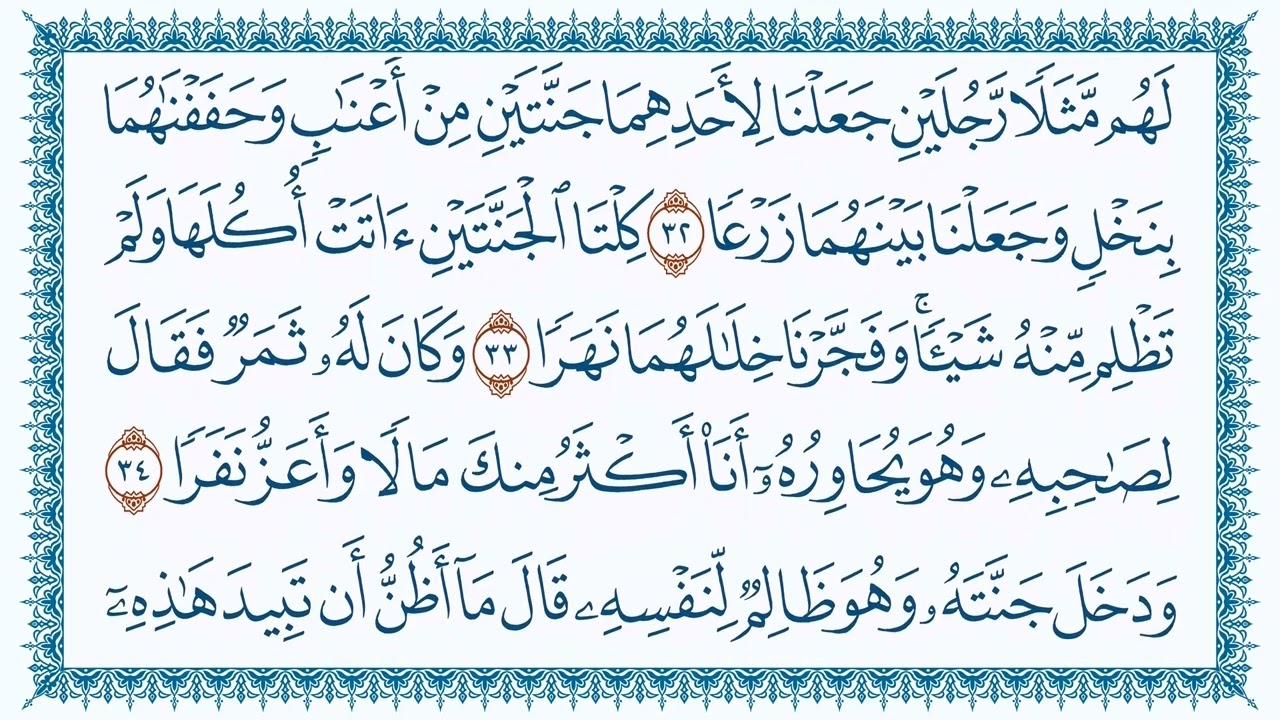 لَهُم مَّثَلًا رَّجُلَيْنِ جَعَلْنَا لِأَحَدِهِمَا جَنَّتَيْنِ مِنْ أَعْنَٰبٍ وَحَفَفْنَٰهُمَا
بِنَخْلٍ وَجَعَلْنَا بَيْنَهُمَا زَرْعًا ٣٢ كِلْتَا ٱلْجَنَّتَيْنِ ءَاتَتْ أُكُلَهَا وَلَمْ
تَظْلِم مِّنْهُ شَيْـًٔا ۚ وَفَجَّرْنَا خِلَٰلَهُمَا نَهَرًا ٣٣ وَكَانَ لَهُۥ ثَمَرٌ فَقَالَ
لِصَٰحِبِهِۦ وَهُوَ يُحَاوِرُهُۥٓ أَنَا۠ أَكْثَرُ مِنكَ مَالًا وَأَعَزُّ نَفَرًا ٣٤
وَدَخَلَ جَنَّتَهُۥ وَهُوَ ظَالِمٌ لِّنَفْسِهِۦ قَالَ مَآ أَظُنُّ أَن تَبِيدَ هَٰذِهِۦٓ